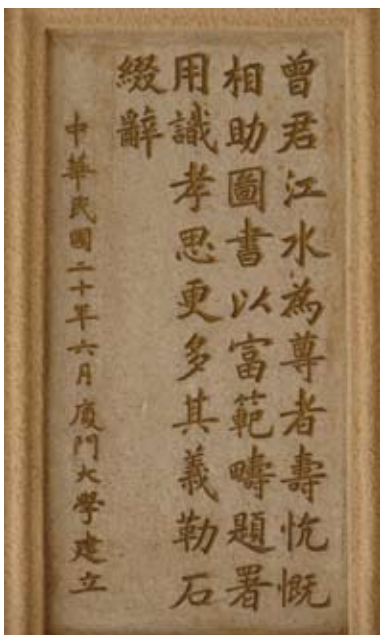 曾君江水為尊者壽忼慨
相助圖書以富範疇題署
用識孝思更多其義勒石
綴辭
中華民國二十年六月廈門大學建立